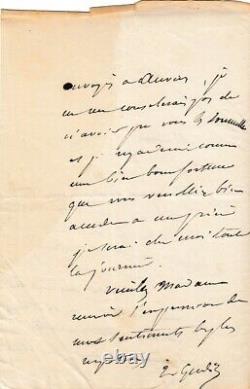 envoyés à Anvers, je
ne me consolerais pas de
n'avoir pu vous les soumettre
et je regarderai comme
une bien bonne fortune
que vous veuillez bien
accéder à ma prière
je serai chez moi toute
la journée.
Veuillez Madame
recevoir l'expression de
mes sentiments les plus